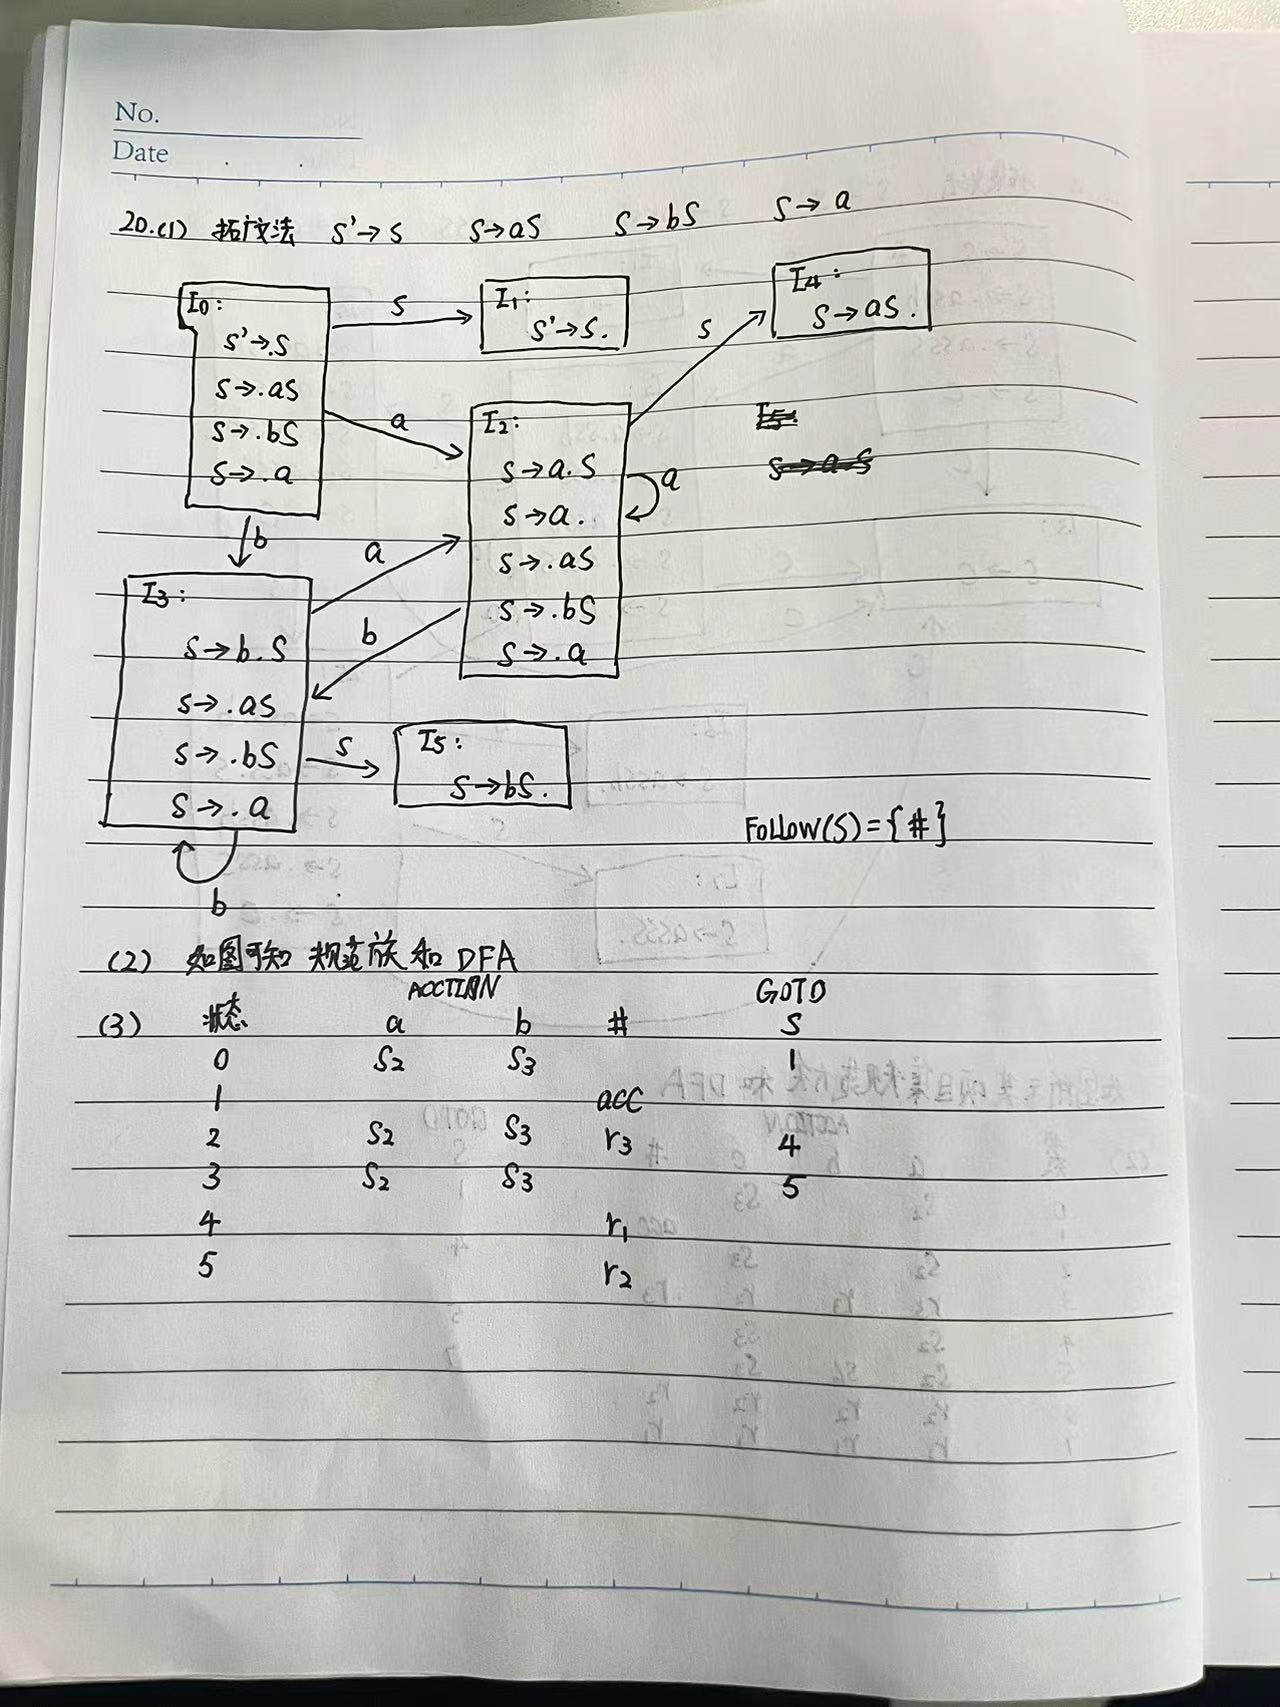 No.
Date
20.(1) 拓广文法 S'→S S→aS S→bS S→a
I0:
S'→.S
S→.aS
S→.bS
S→.a
S
I1:
S'→S.
a
I2:
S→a.S
S→a.
S→.aS
S→.bS
S→.a
S
I4:
S→aS.
a
b
a
b
I3:
S→b.S
S→.aS
S→.bS
S→.a
S
I5:
S→bS.
b
FOLLOW(S)={#}
(2) 如图可知 规范族和DFA
ACCTION GOTO
(3) 状态 a b # S
0 S2 S3 1
1 acc
2 S2 S3 r3 4
3 S2 S3 5
4 r1
5 r2